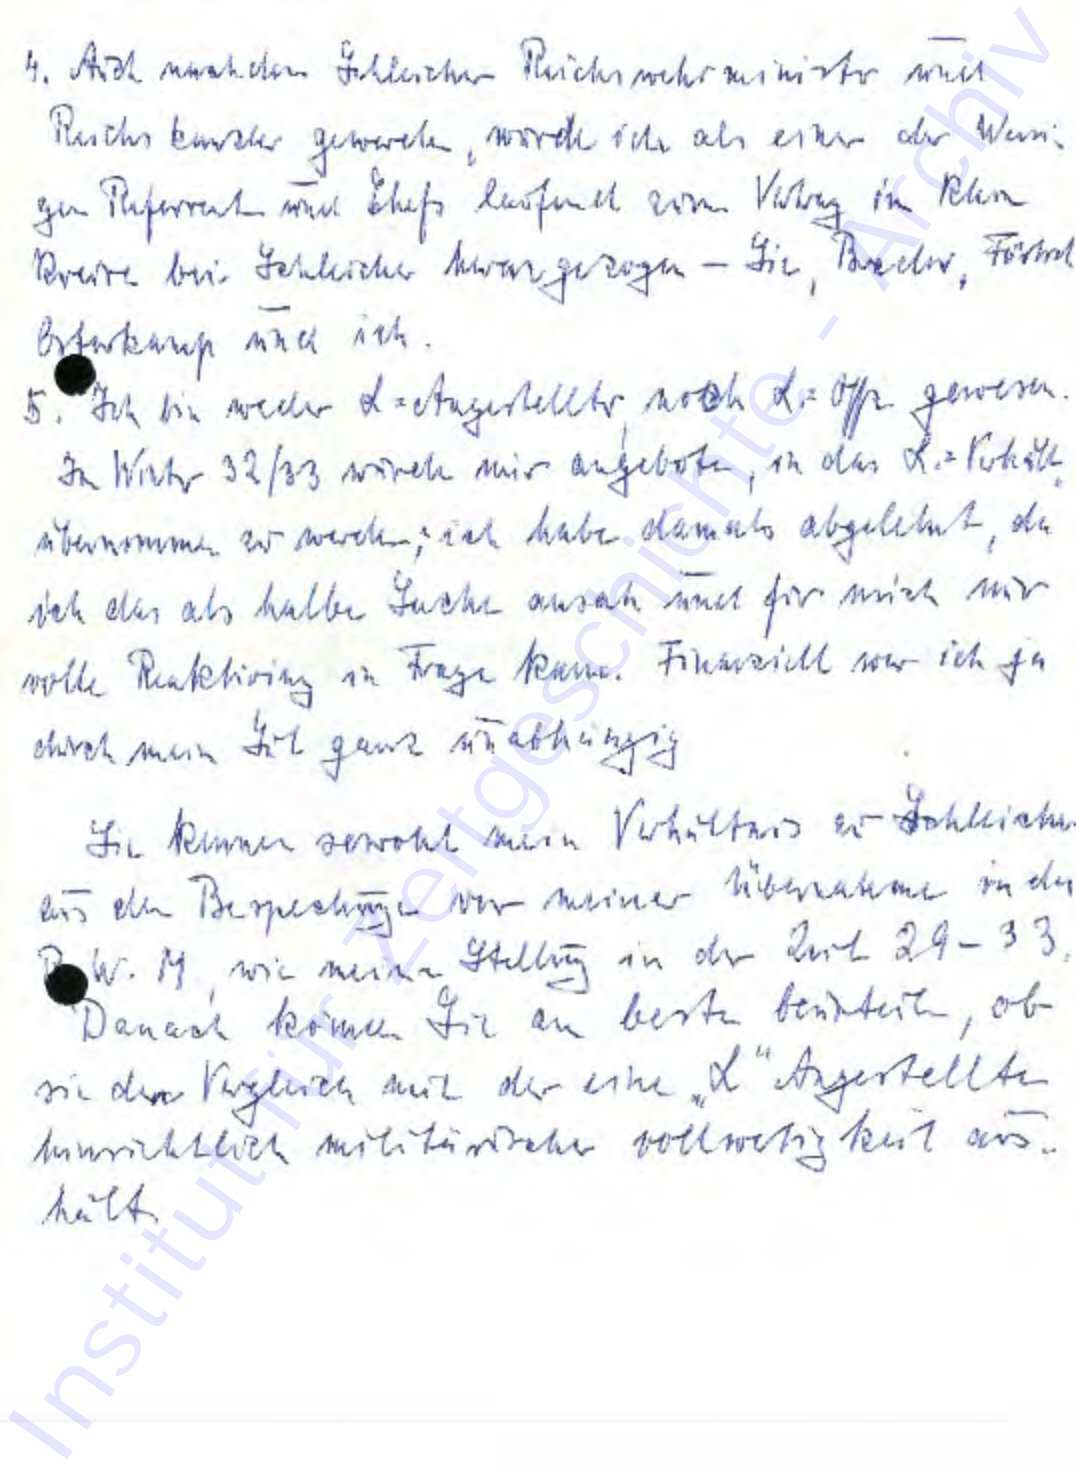 4. Auch nachdem Schleicher Reichswehrminister und
Reichskanzler geworden, wurde ich als einer der Weni-
gen Referenten und Chefs laufend zum Vortrag in kleinem
Kreise bei Schleicher herangezogen – Sie, Bredow,
Osterkamp und ich.
5. Ich bin weder L=Angestellter, noch L=Offz. gewesen.
Im Winter 32/33 wurde mir angeboten, in das L.=Verhält.
übernommen zu werden; ich habe damals abgelehnt, da
ich das als halbe Sache ansah und für mich nur
volle Reaktivirung in Frage kam. Finanziell war ich ja
durch mein Gut ganz unabhängig
Sie kennen sowohl mein Verhältnis zu Schleicher
aus den Bespechungen vor meiner Übernahme in das
R.W.M, wie meine Stellung in der Zeit 29–33.
Danach können Sie am besten beurteilen, ob
sie den Vergleich mit der eines „L" Angestellten
hinsichtlich militärischer vollwertigkeit aus-
hält.
Institut für Zeitgeschichte - Archiv